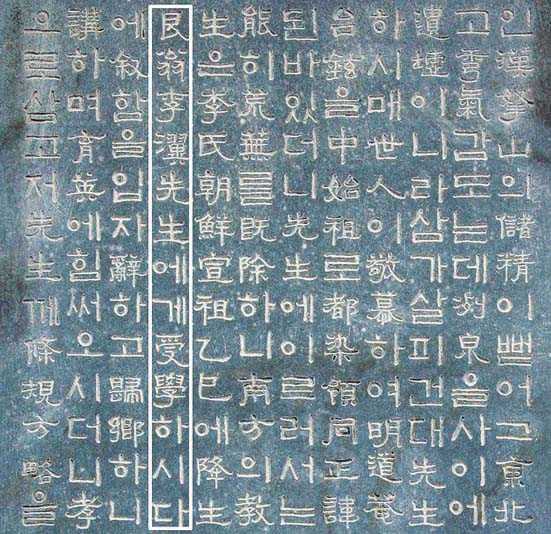 인漢拏山의儲精이뻗어고貢北
고氣감도는데洌泉을사이에
遺墟이니라삼가살피건대先生
하시매世人이敬慕하여明道菴
台鉉을中始祖로都染領同正諱
된바있더니先生에이르러서는
能히荒蕪를旣除하니南方의教
生은李氏朝鮮宣祖乙巳에降生
艮翁李瀷先生에게受學하시다
에叙함을입자辭하고歸鄕하니
講하며育英에힘써오시더니孝
으로삼고저先生께條規方略을